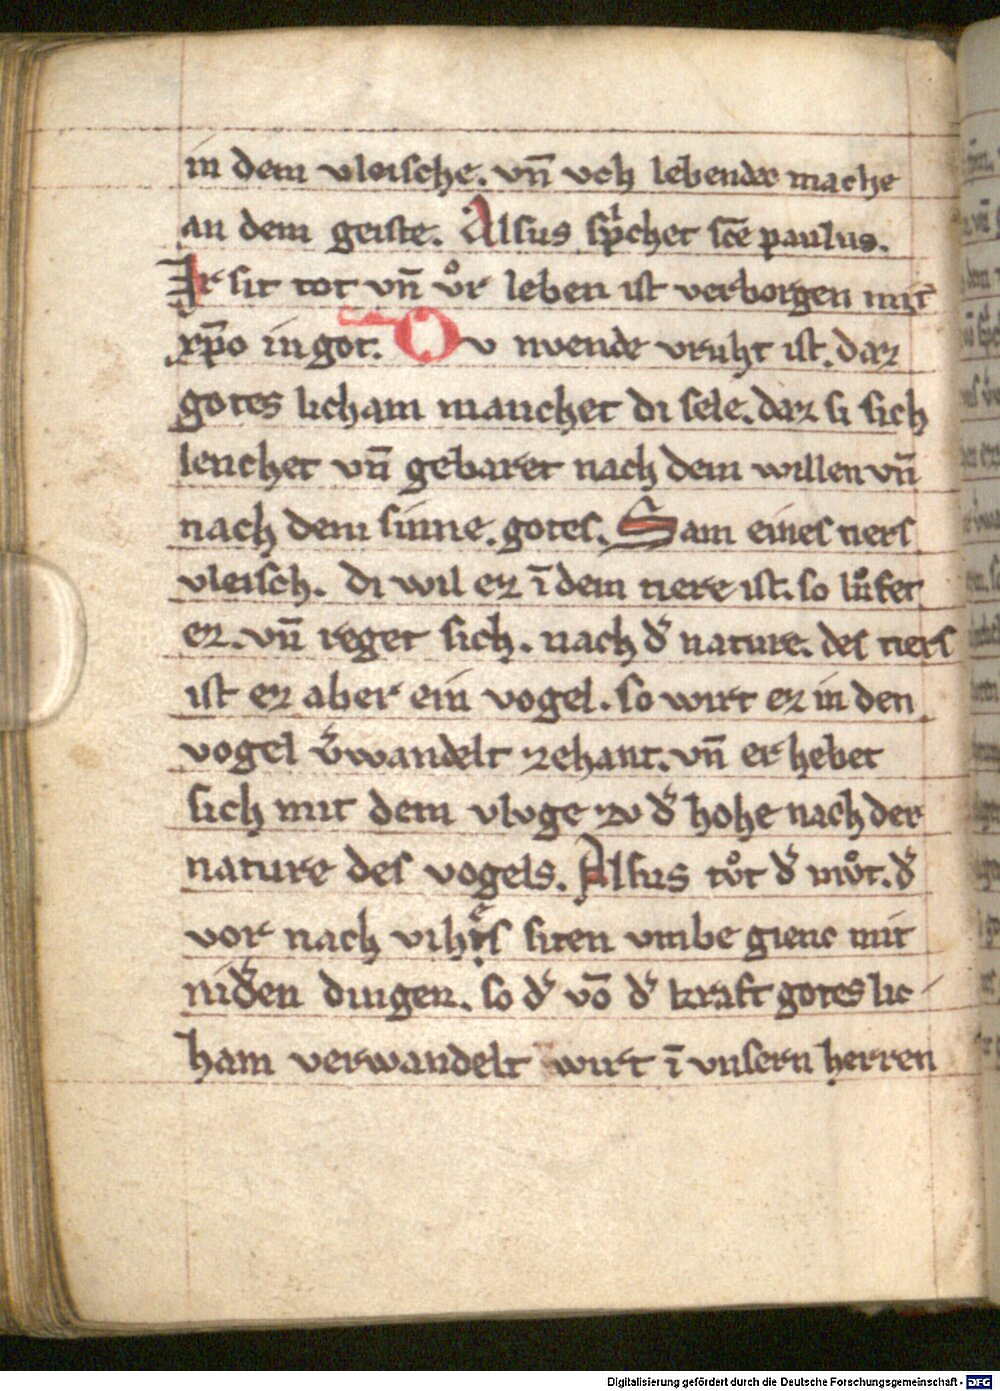 in dem vleische. vn̄ vch lebender mache
an dem geiste. Alsus sp͛chet sc̄e paulus.
Ir sit tot vn̄ vͦr leben ist verborgen mit
xp̄o in got. Dv nvende vruht ist. daz
gotes licham machet di sele. daz si sich
lenchet vn̄ gebaret nach dem willen vn̄
nach dem sinne. gotes. Sam eines tiers
vleisch. di wil ez ī dem tiere ist. so luͦfet
ez. vn̄ reget sich. nach d͛ nature. des tiers
ist ez aber ein vogel. so wirt ez in den
vogel v͛wandelt zehant. vn̄ er hebet
sich mit dem vlvge zv d͛ hohe nach der
nature des vogels. Alsus tvͦt d͛ mvͦt. d͛
vor nach siten vmbe gienc mit
nid͛en dingen. so d͛ vō d͛ kraft gotes lic
ham verwandelt wirt ī vnsern herren
Digitalisierung gefördert durch die Deutsche Forschungsgemeinschaft - DFG